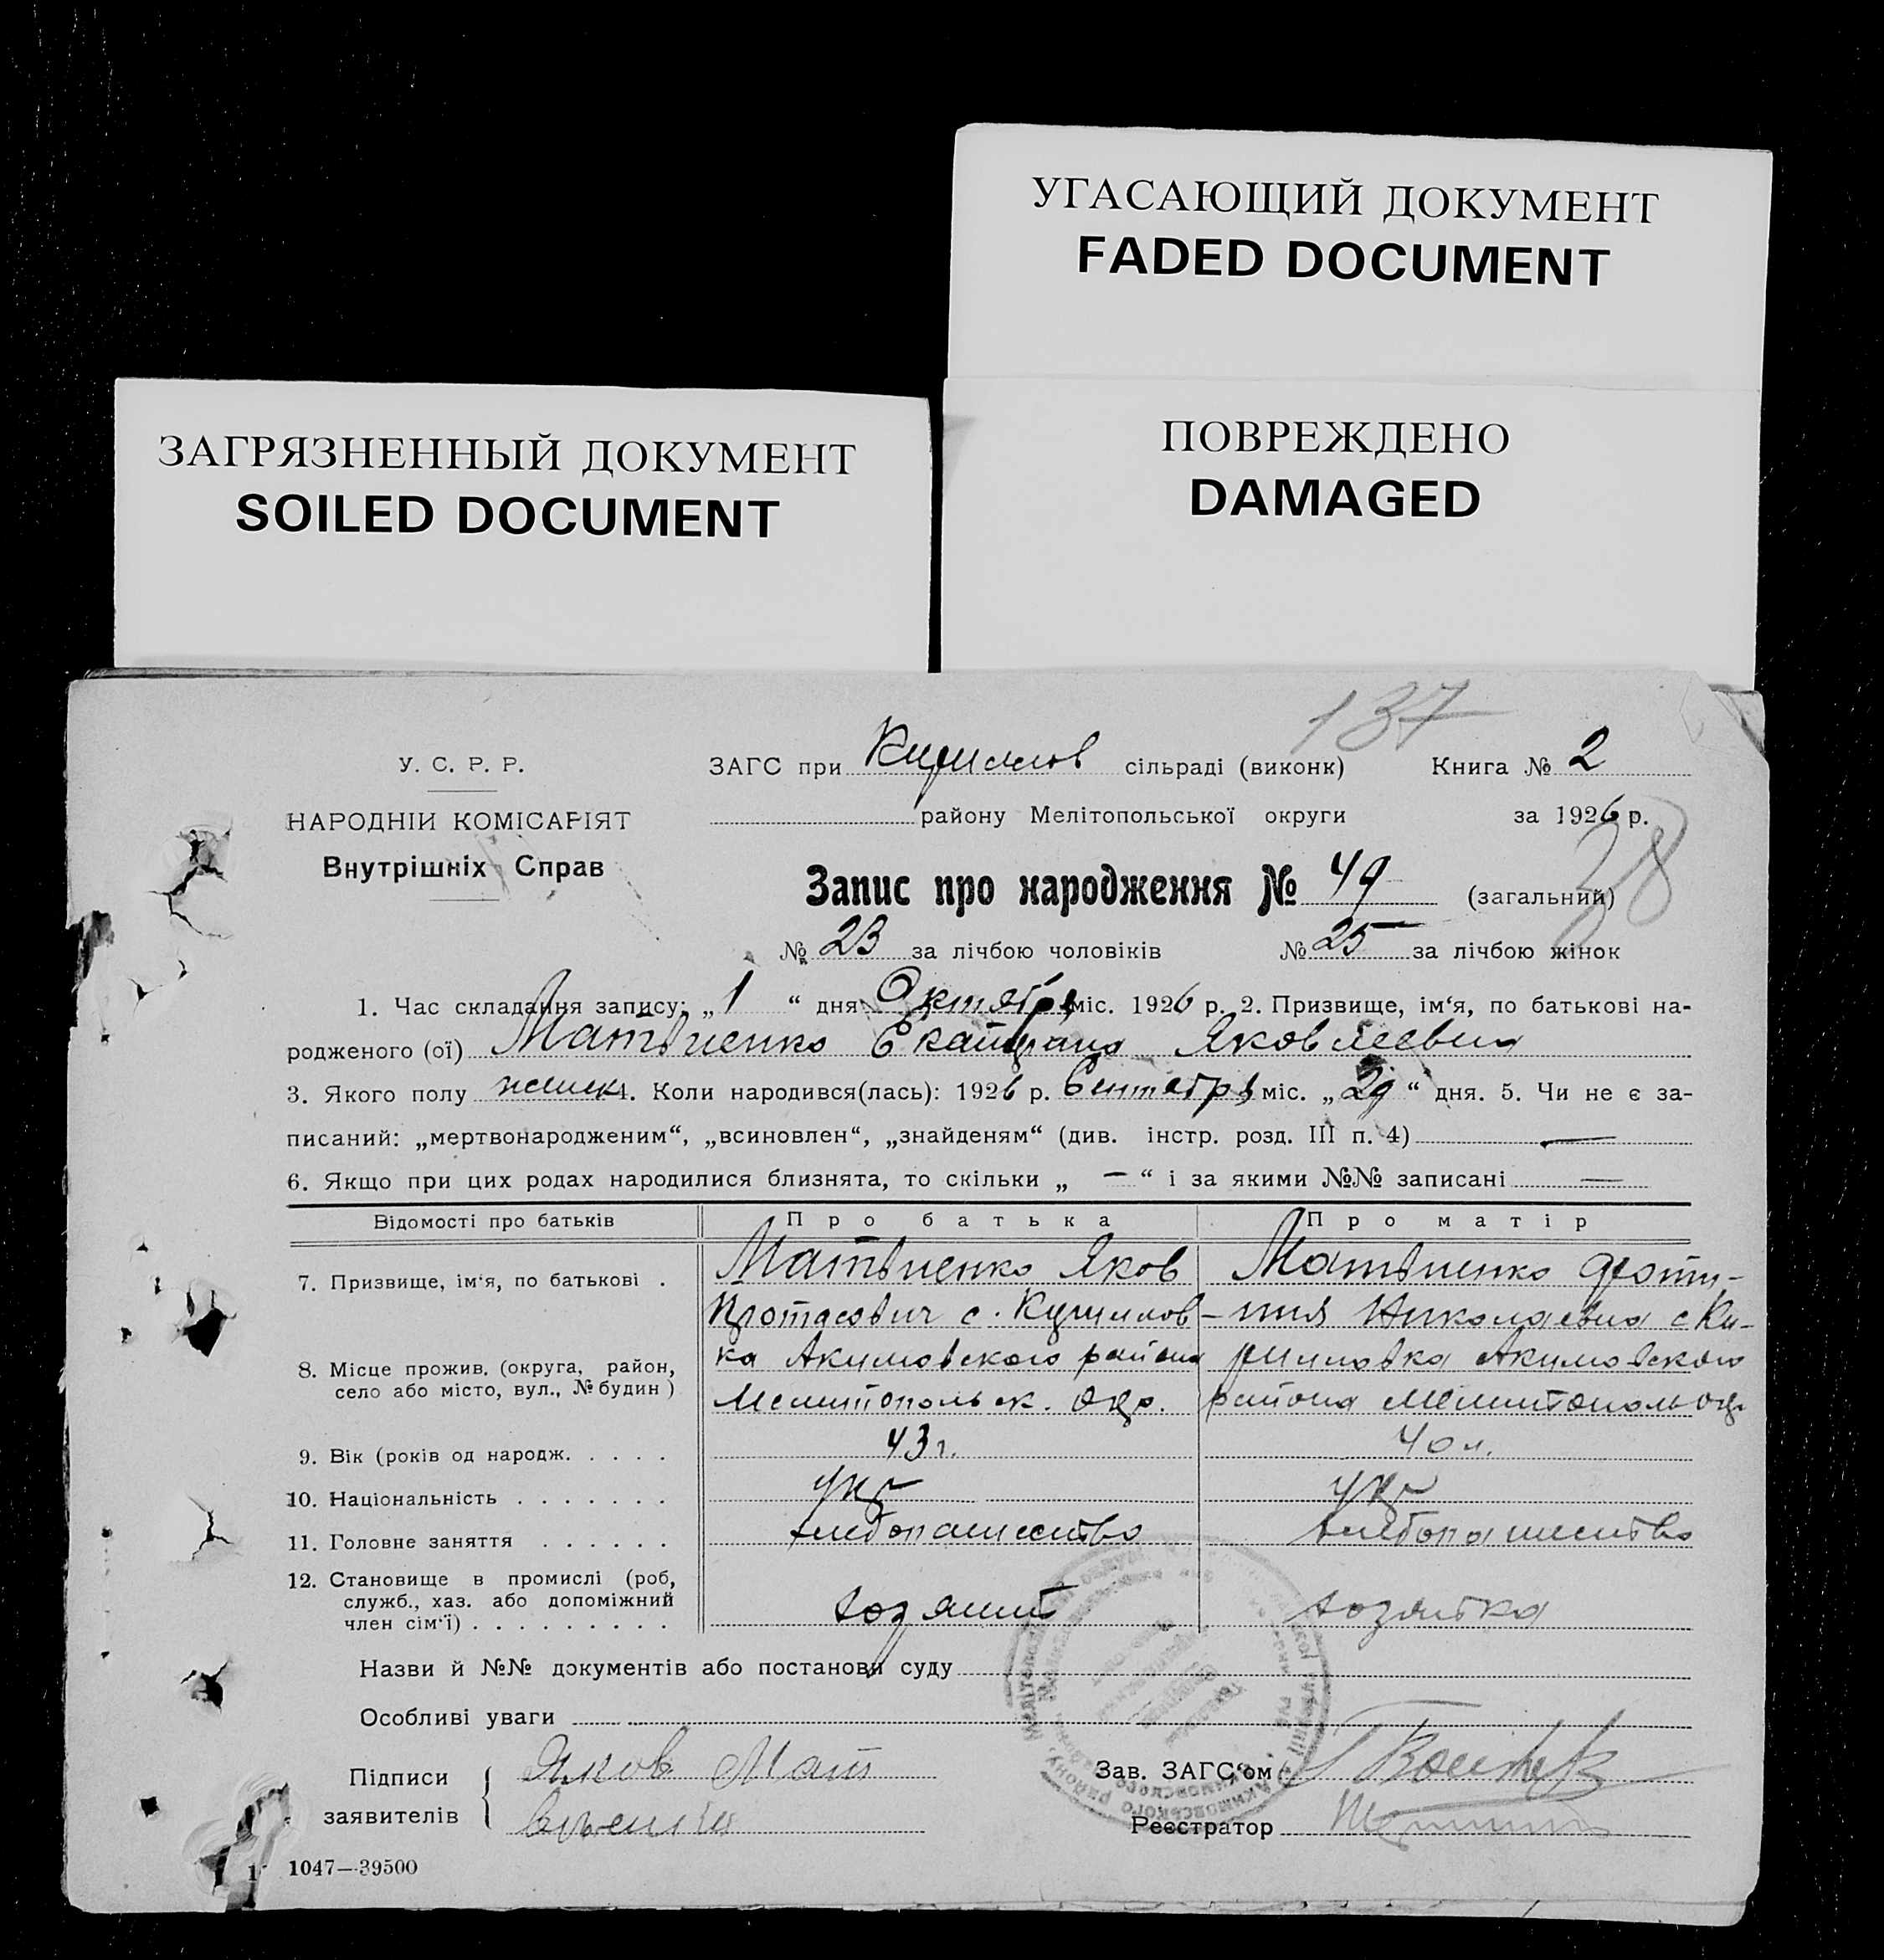 УГАСАЮЩИЙ ДОКУМЕНТ
FADED DOCUMENT
ЗАГРЯЗНЕННЫЙ ДОКУМЕНТ
SOILED DOCUMENT
ПОВРЕЖДЕНО
DAMAGED
137
У. С. Р. Р.
НАРОДНІЙ КОМІСАРІЯТ
Внутрішніх Справ
ЗАГС при Кириллов сільраді (виконк) Книга № 2
району Мелітопольської округи за 1926 р.
38
Запис про народження № 49 (загальний)
№ 23 за лічбою чоловіків № 25 за лічбою жінок
1. Час складання запису: „1“ дня Октября міс. 1926 р. 2. Призвище, ім‘я, по батькові на-
родженого (ої) Матвиенко Екатерина Яковлеевна
3. Якого полу женск 4. Коли народився(лась): 1926 р. Сентября міс. „29“ дня. 5. Чи не є за-
писаний: „мертвонародженим“, „всиновлен“, „знайденям“ (див. інстр. розд. III п. 4) —
6. Якщо при цих родах народилися близнята, то скільки „ — “ і за якими №№ записані —
Відомості про батьків Про батька Про матір
7. Призвище, ім‘я, по батькові . Матвиенко Яков Матвиенко
Протасович с. Кириллов- Николаевна с Ки-
8. Місце прожив. (округа, район, село або місто, вул., № будин) ка Акимовского района рилловка Акимовского
Мелитопольск. окр. района Мелитополь окр
9. Вік (років од народж. . . . . 43 г. 40 л.
10. Національність . . . . . . . укр укр
11. Головне заняття . . . . . . хлебопашество хлебопашество
12. Становище в промислі (роб,
служб., хаз. або допоміжний
член сім‘ї) . . . . . . . . . хозяин хозяйка
Назви й №№ документів або постанови суду
Особливі уваги
Підписи
заявителів
Яков Мат
виенко
Зав. ЗАГС‘ом
Реєстратор
1047—39500